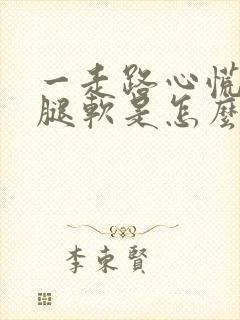 一走路心慌
腿軟是怎麼
李東賢